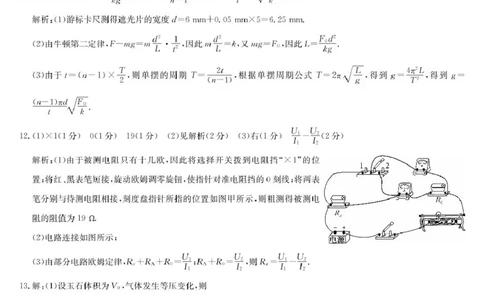 解析:(1)游标卡尺测得遮光片的宽度 d=6 mm+0.05 mm×5=6.25 mm.
(2)由牛顿第二定律,F-mg=m d²/L·1/t²,因此 m d²/L=k,又 mg=F₀,因此 L=F₀d²/kg.
(3)由于 t=(n-1)×T/2,则单摆的周期 T=2t/(n-1),根据单摆周期公式 T=2π√(L/g),得到 g=4π²L/T²,得到 g=
(n-1)πd/t √(F₀/k).
12.(1)×1(1分) 0(1分) 19(1分) (2)见解析(2分) (3)右(1分) U₁/I₁-U₂/I₂(2分)
解析:(1)由于被测电阻只有十几欧,因此将选择开关拨到电阻挡“×1”的位
置;将红、黑表笔短接,旋动欧姆调零旋钮,使指针对准电阻挡的0刻线;将两表
笔分别与待测电阻相接,刻度盘指针所指的位置如图甲所示,则粗测得被测电
阻的阻值为19 Ω.
(2)电路连接如图所示:
(3)由部分电路欧姆定律,Rₓ+R_A+R₀=U₁/I₁;R_A+R₀=U₂/I₂,则Rₓ=U₁/I₁-U₂/I₂.
1
2
电源
13.解:(1)设玉石体积为V₀,气体发生等压变化,则